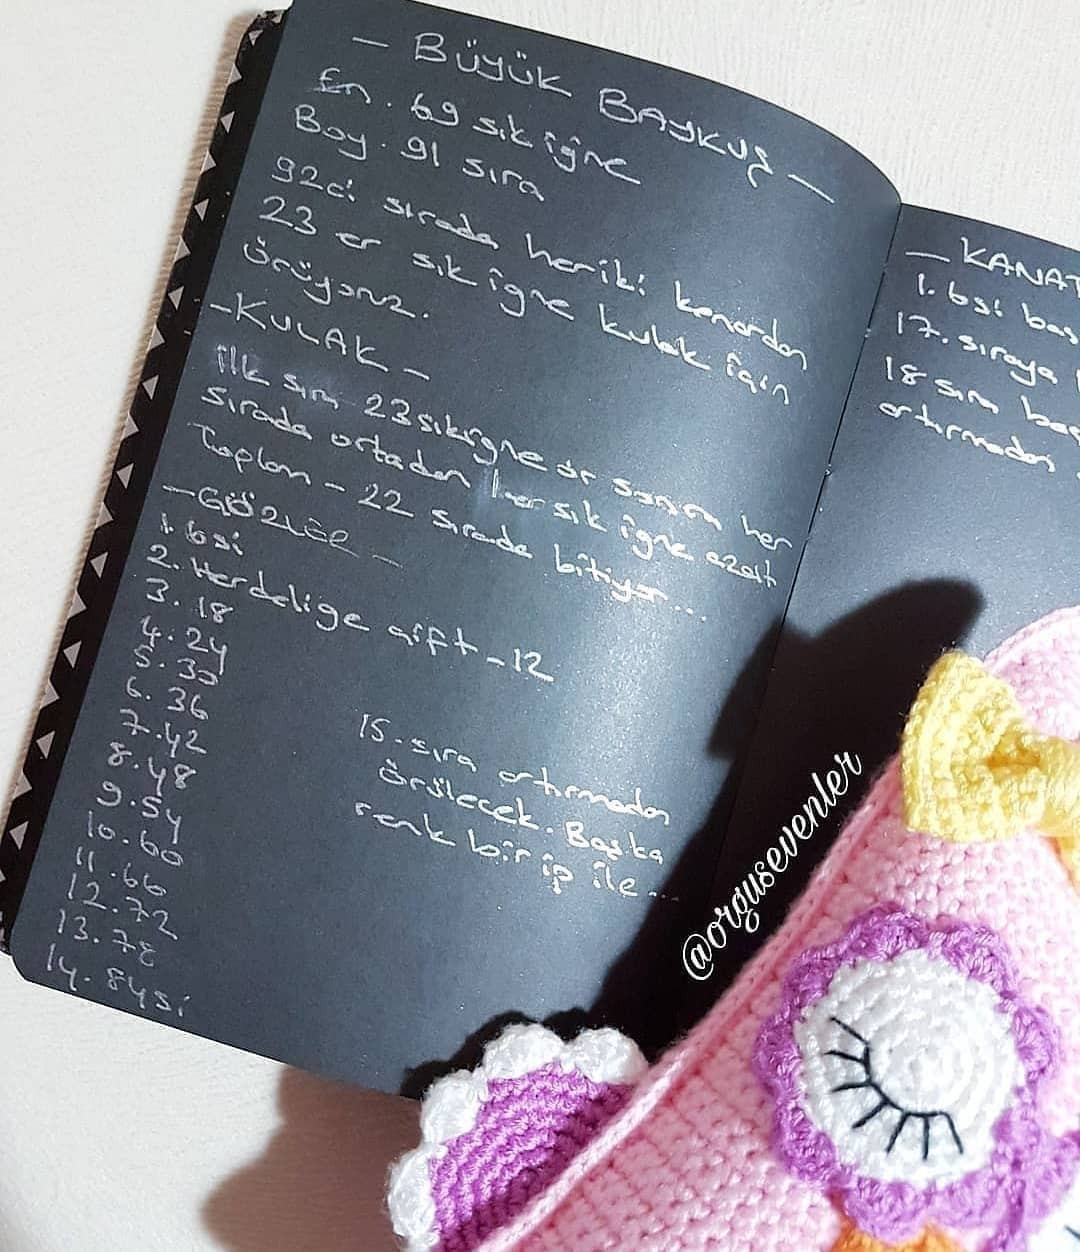 — BÜYÜK BAYKUŞ —
En. 69 sık iğne
Boy. 91 sıra
92ci sırada her iki kenardan
23 er sık iğne kulak için
örüyoruz.
—KULAK —
ilk sıra 23 sık iğne ör sonra her
sırada ortadan bir sık iğne azalt
Toplam – 22 sırada bitiyor...
—GÖZLER —
1. 6si
2. Her deliğe çift – 12
3. 18
4. 24
5. 30
6. 36
7. 42
8. 48
9. 54
10. 60
11. 66
12. 72
13. 78
14. 84si
15. sıra artırmadan
örülecek. Başka
renk bir ip ile...
— KANAT
1. 6si baş
17. sıraya
18 sıra baş
artırmadan
@orgusevenler